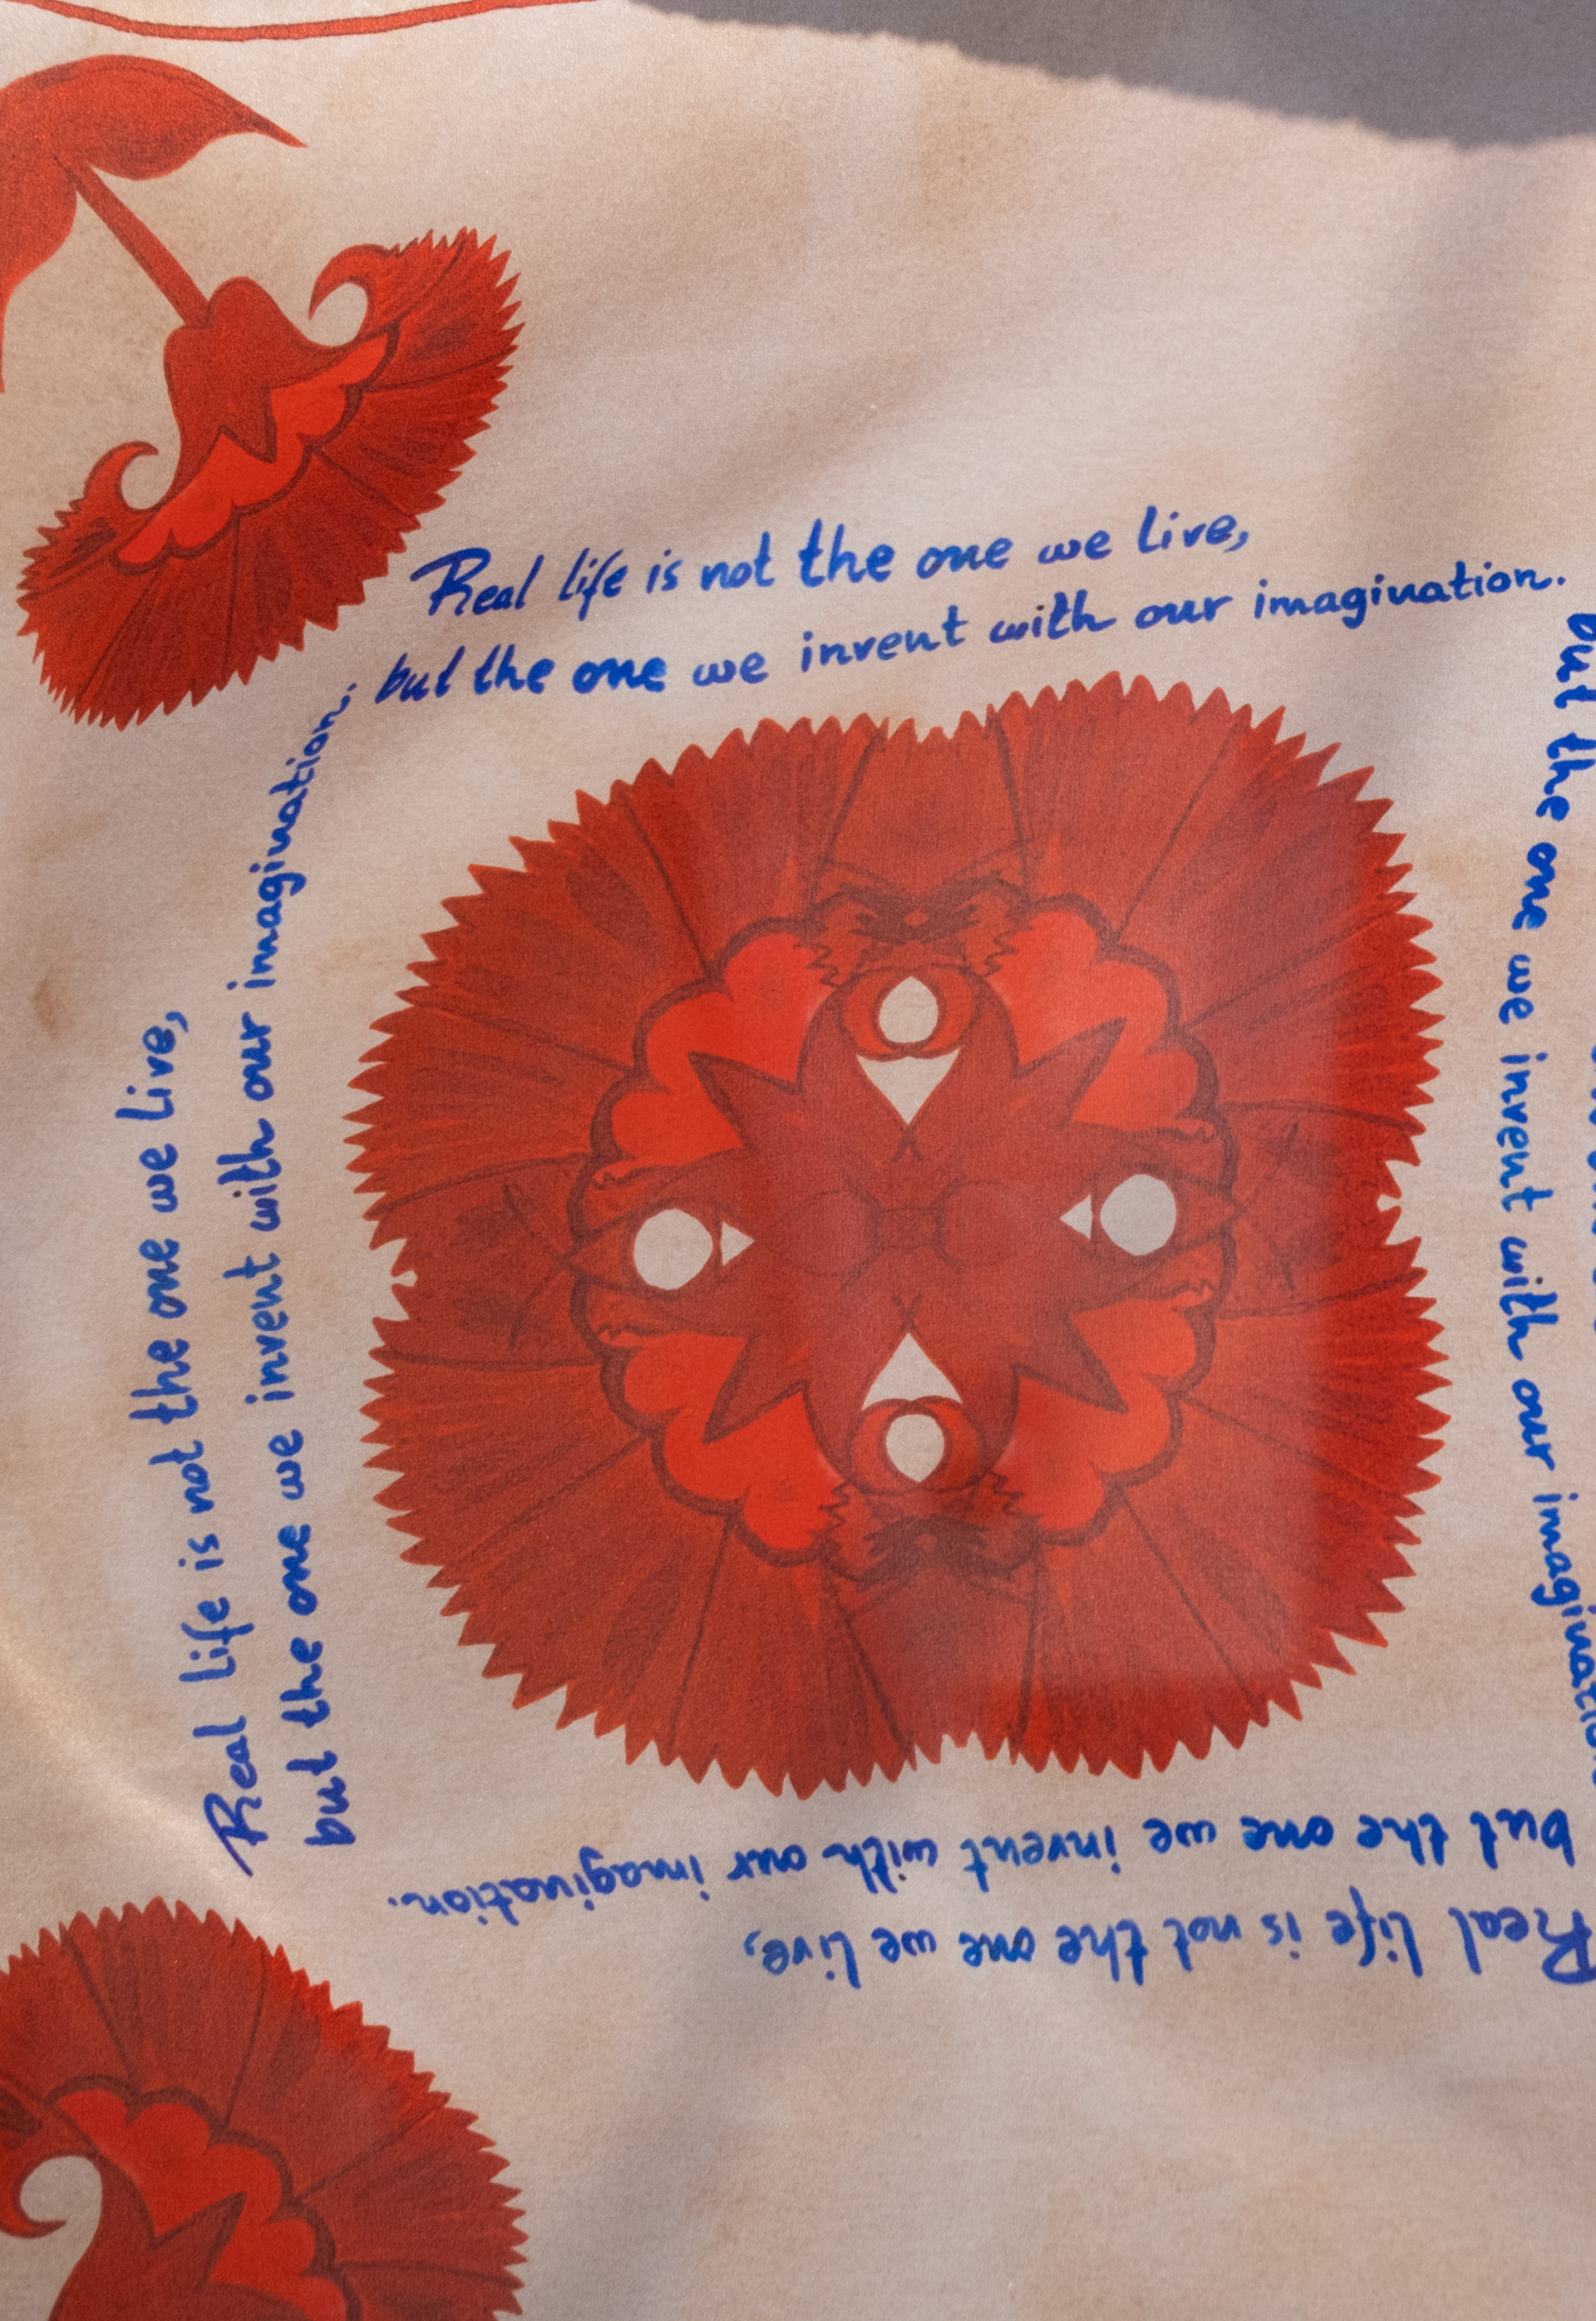 Real life is not the one we live,
but the one we invent with our imagination.
Real life is not the one we live,
but the one we invent with our imagination.
but the one we invent with our imagination
Real life is not the one we live,
but the one we invent with our imagination.